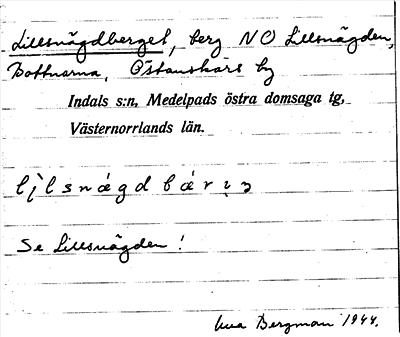 Lillsnägdberget, berg NO Lillsnägden,
Bottnarna, Östanskärs by
Indals s:n, Medelpads östra domsaga tg,
Västernorrlands län.
Se Lillsnägden!
Bergman 1944.